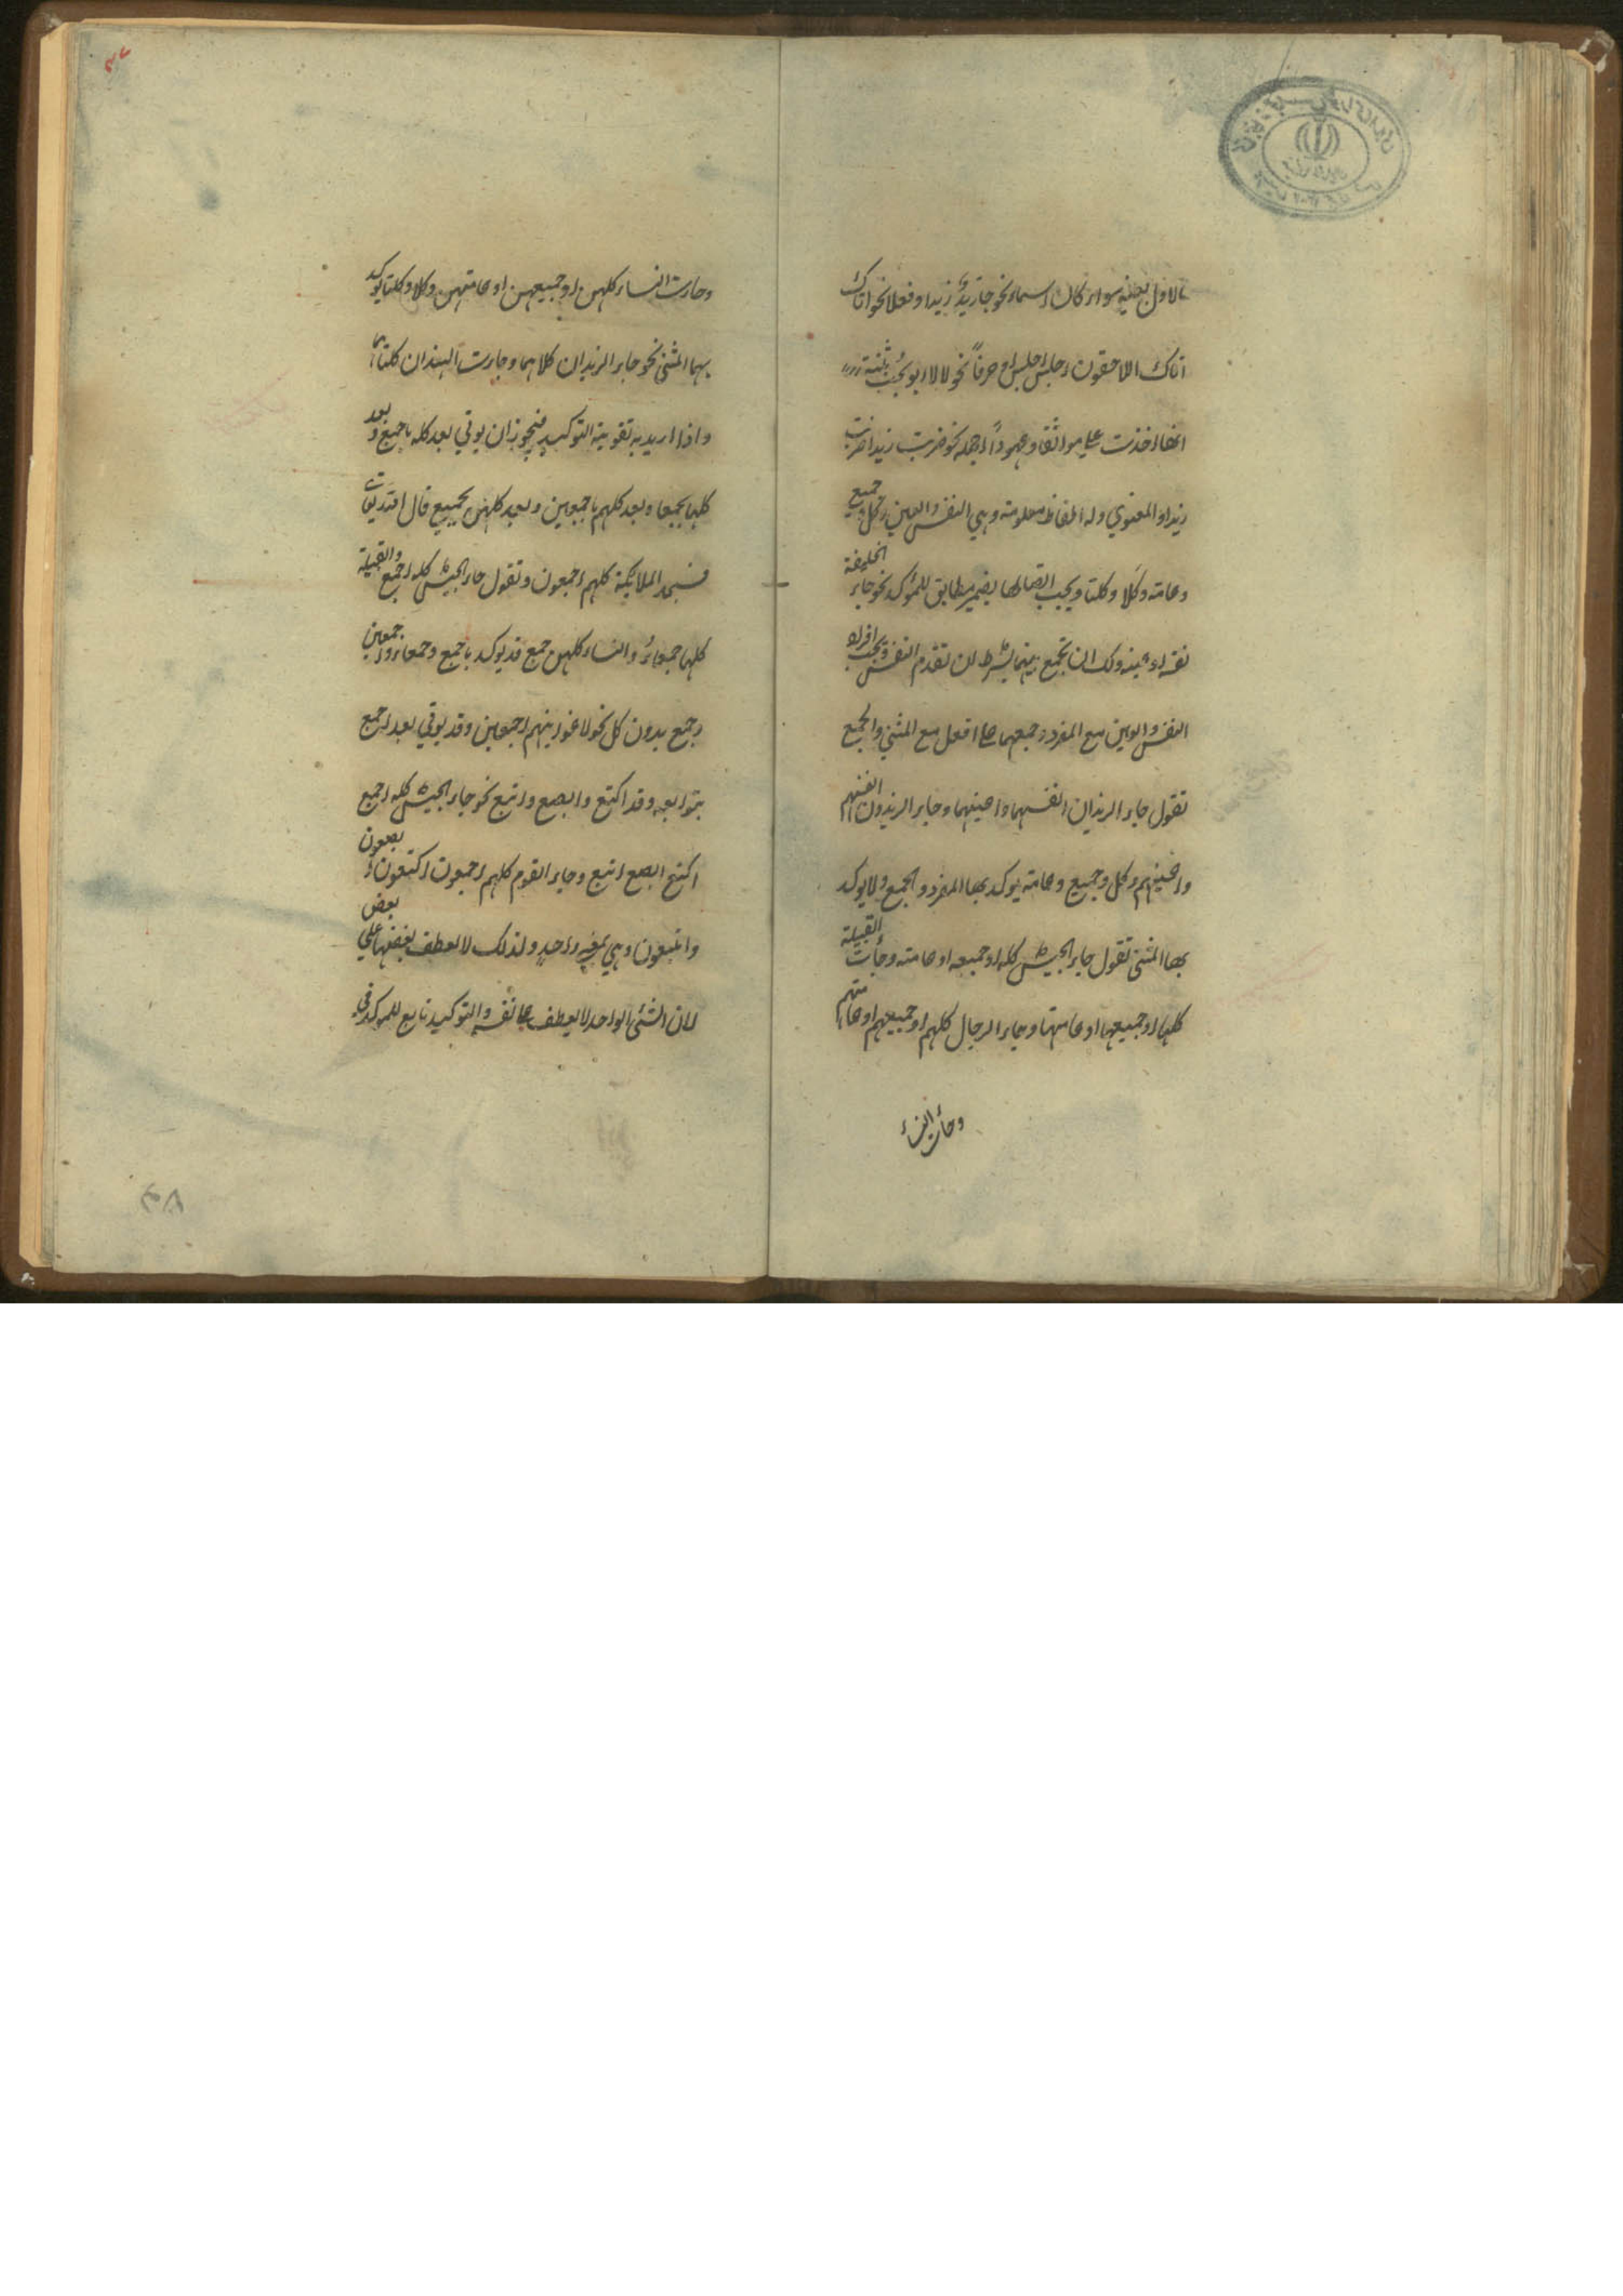 الاول بعينه سواء كان اسماء نحو جاء زيد زيد او فعلا نحو اتاك
اتاك اللاحقون احبس احبس او حرفاً نحو لا لا ابوء بحب بثنة
انها اخذت علي مواثقا وعهوداً او جمله نحو ضربت زيدا ضربت
زيدا و المعنوي وله الفاظ معلومة وهي النفس والعين وكل و جميع
وعامته وكلا وكلتا ويجب اتصالها بضمير مطابق للمؤكد نحو جاء الخليفة
نفسه او عينه ولك ان تجمع بينهما بشرط ان تقدم النفس ويجب افراد
النفس والعين مع المفرد وجمعهما على افعل مع المثني والجمع
تقول جاء الزيدان انفسهما واعينهما وجاء الزيدون انفسهم
واعينهم وكل وجميع وعامته يوكد بها المفرد والجمع ولا يوكد
بها المثنى تقول جاء الجيش كله او جميعه او عامته وجأت القبيلة
كلها او جميعها او عامتها وجاء الرجال كلهم او جميعهم او عامتهم
وجأت النساء
وجاءت النساء كلهن او جميعهن او عامتهن وكلا وكلتا يوكد
بهما المثنى نحو جاء الزيدان كلاهما وجاءت الهندان كلتاهما
واذا اريد به تقوية التوكيد فيجوز ان يوتي بعد كله باجمع وبعد
كلها بجمعاء وبعد كلهم باجمعين وبعد كلهن بجميع قال الله تعالى
فسجد الملائكة كلهم اجمعون وتقول جاء الجيش كله اجمع والقبيلة
كلها جمعاء والنساء كلهن جمع قد يوكد باجمع وجمعاء واجمعين
وجمع بدون كل نحو لاغوينهم اجمعين وقد يوتي بعد اجمع
بتوابعه وقد اكتع وابصع واتبع نحو جاء الجيش كله اجمع
اكتع ابصع اتبع وجاء القوم كلهم اجمعون اكتعون ابصعون
واتبعون وهي بمعنى واحد ولذلك لا يعطف بعضها علي بعض
لان الشئ الواحد لا يعطف على نفسه والتوكيد تابع للموكد في